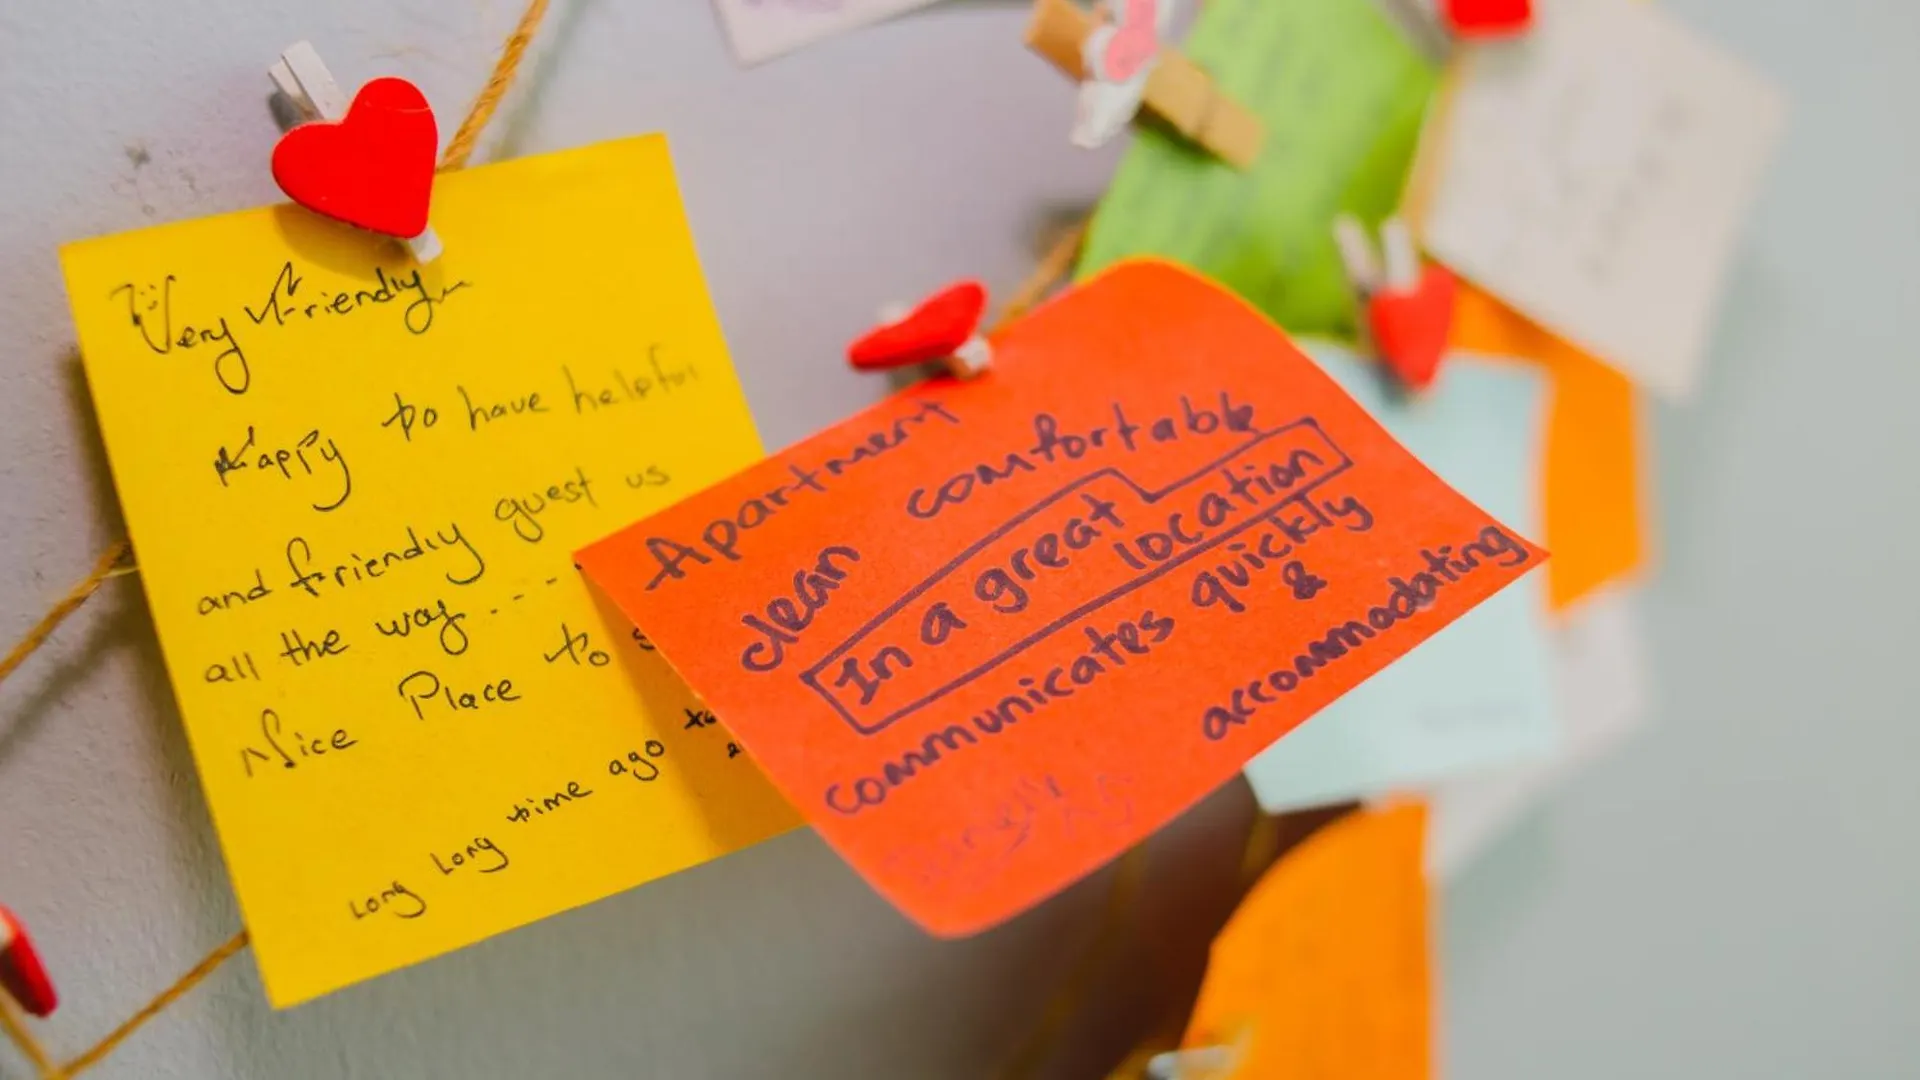 Very friendly
Happy to have helpful
and friendly guest us
all the way . . - - -
Nice Place to
Long Long time ago
Apartment
clean comfortable
In a great location
communicates quickly
&
accommodating